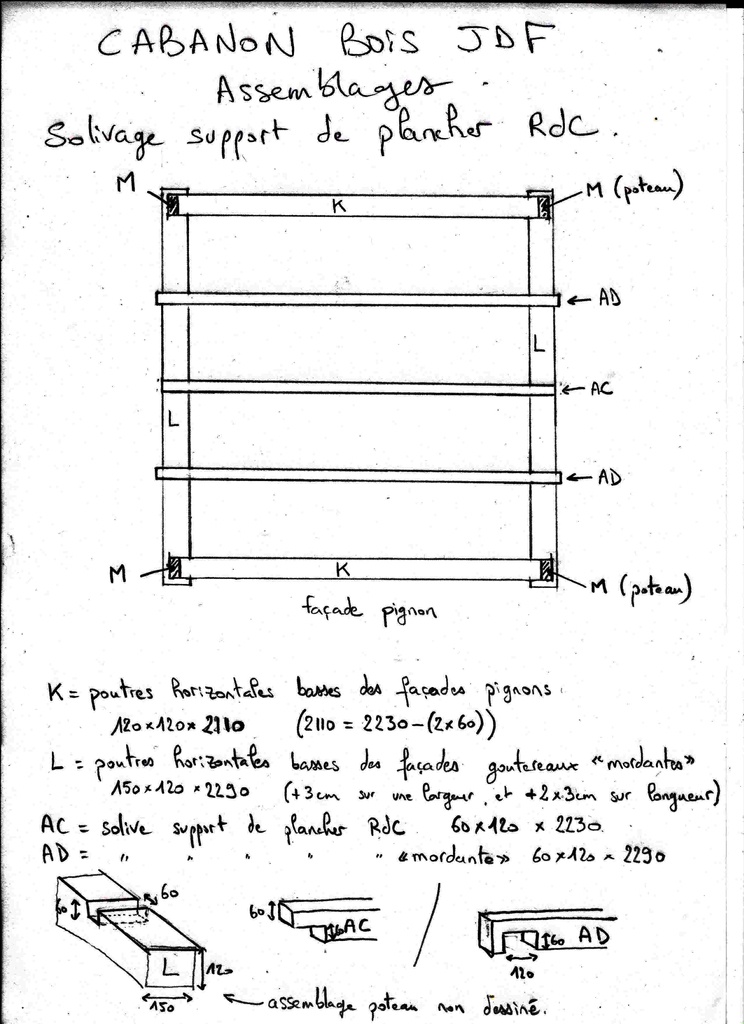 CABANON BOIS JDF
Assemblages.
Solivage support de plancher RdC.
M
K
M (poteau)
AD
L
AC
L
AD
M
K
M (poteau)
façade pignon
K = poutres horizontales basses des façades pignons.
120 x 120 x 2110 (2110 = 2230 - (2x60))
L = poutres horizontales basses des façades goutereaux "mordantes"
150 x 120 x 2290 (+3cm sur une largeur, et +2x3cm sur longueur)
AC = solive support de plancher RdC 60 x 120 x 2230
AD = " " " " " «mordante» 60 x 120 x 2290
60
60
L
120
150
60
60
AC
60
AD
120
assemblage poteau non dessiné.